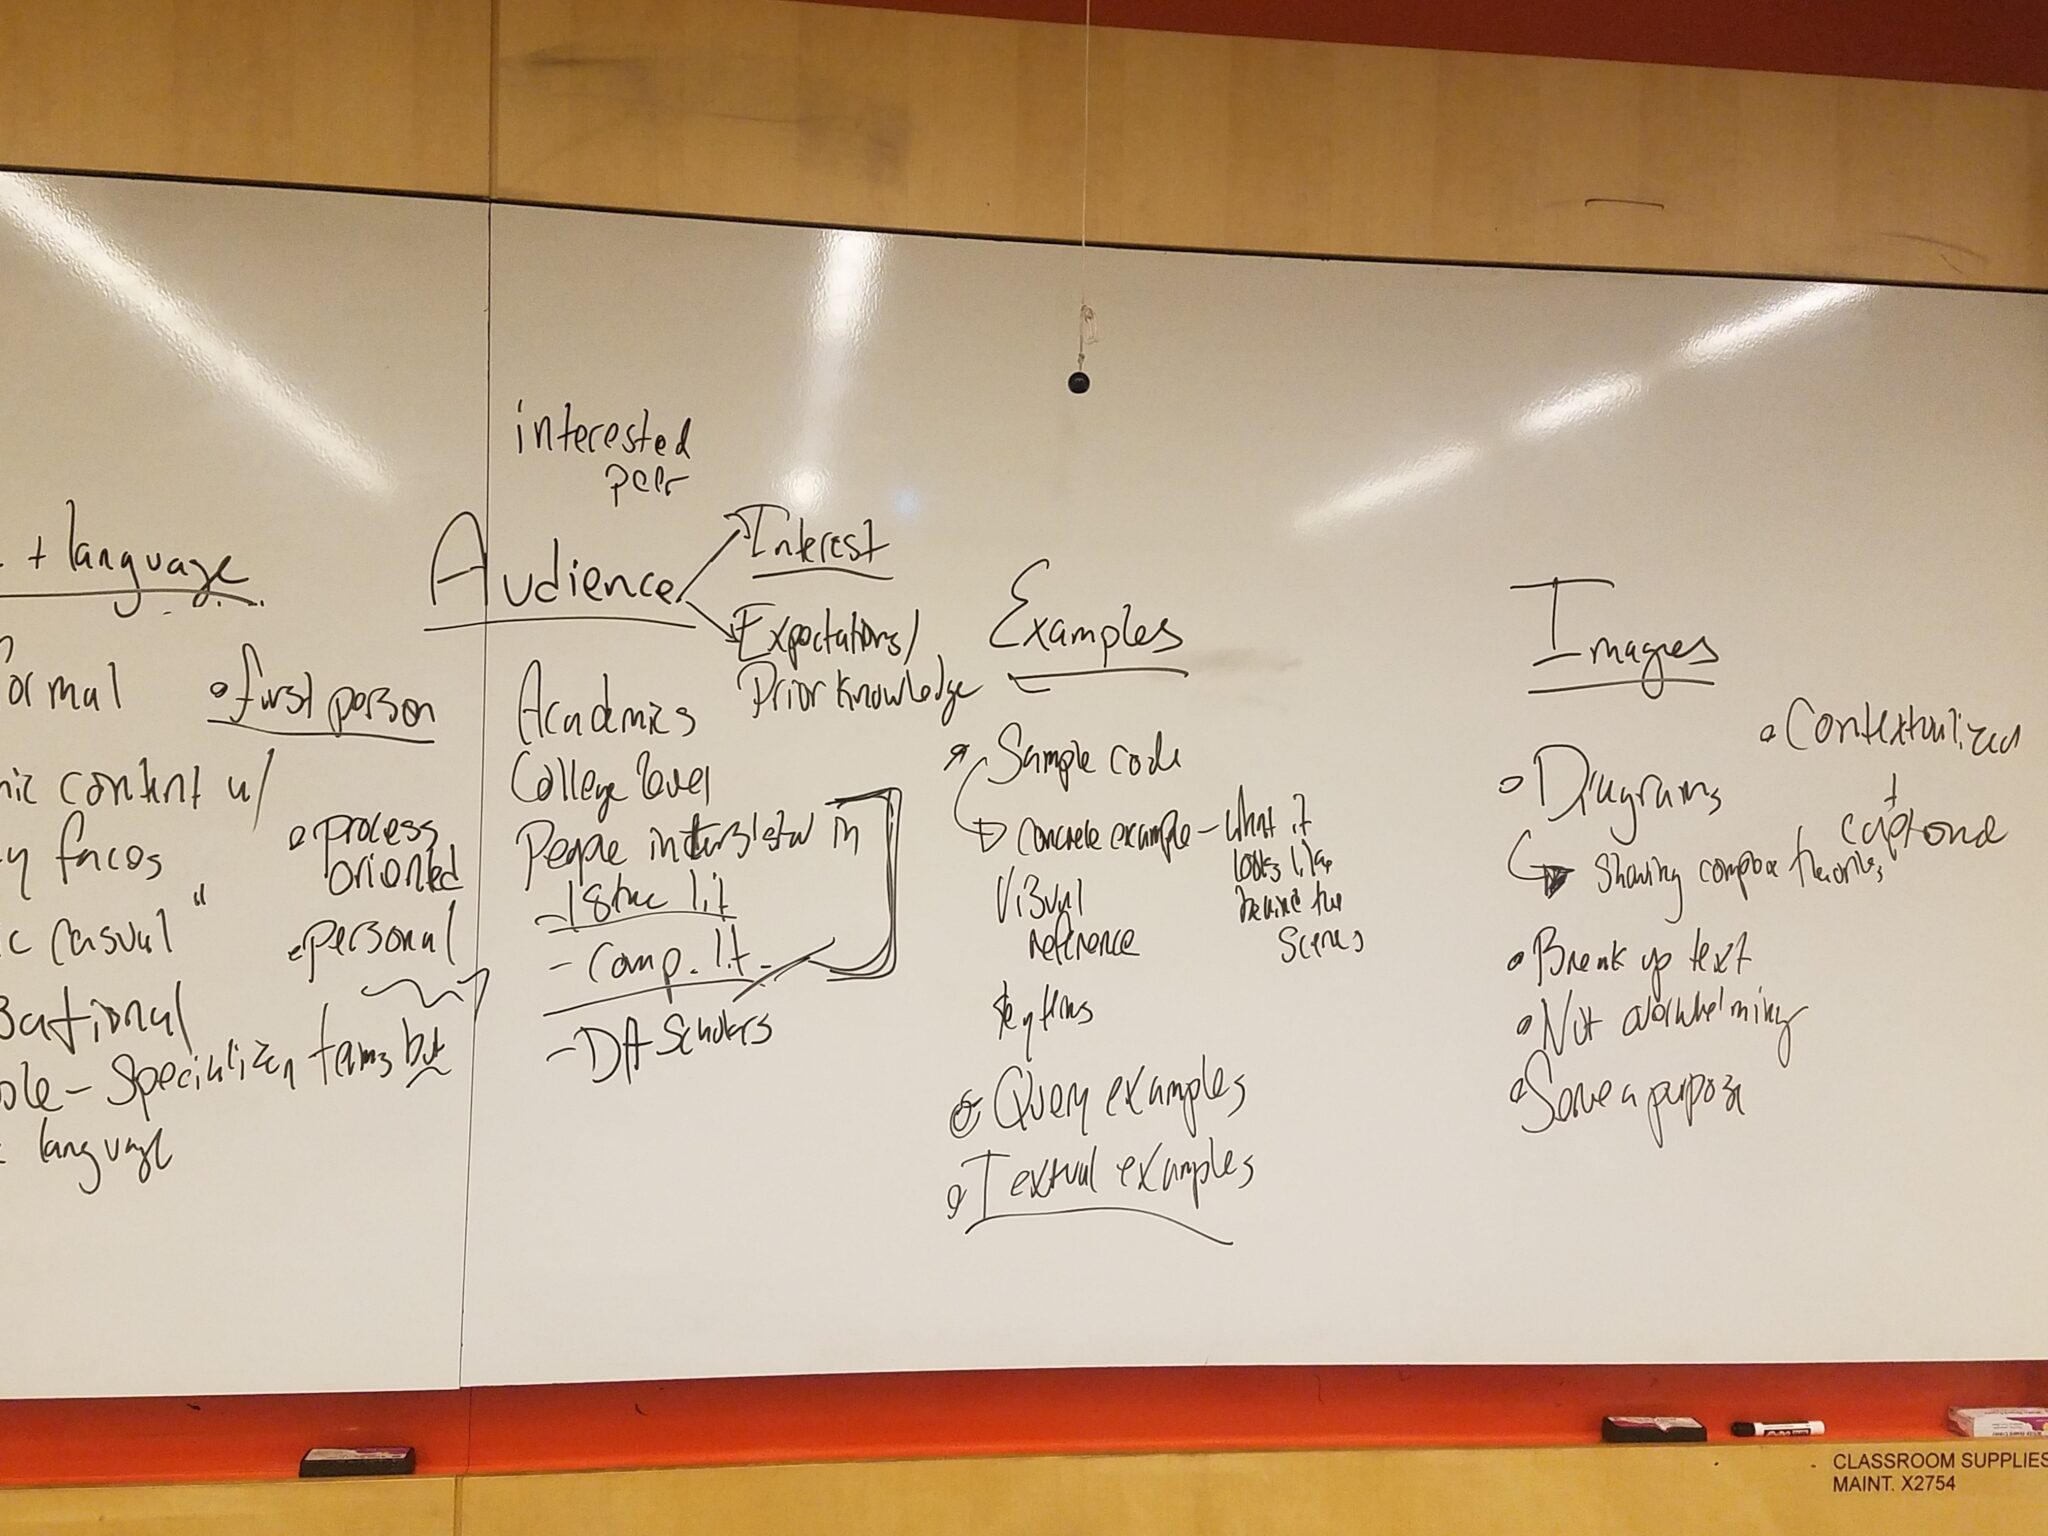 + language
ormal
• first person
nic content w/
y faces
• process
oriented
c casual"
• personal
sational
ole - specialized terms but
language
interested
peer
Audience
Interest
Expectations/
Prior Knowledge
Academics
College level
People interested in
- 18thc lit
- Comp. lit.
- DH Scholars
Examples
Sample code
concrete example - what it
looks like
behind the
scenes
Visual
reference
Key terms
• Query examples
• Textual examples
Images
• Contextualized
+
captioned
• Diagrams
Showing complex theories
• Break up text
• Not overwhelming
• Serve a purpose
CLASSROOM SUPPLIES
MAINT. X2754